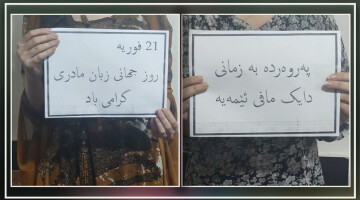 21 فوریه
روز جهانی زبان مادری
گرامی باد
پەروەردە بە زمانی
دایک مافی ئێمەیە